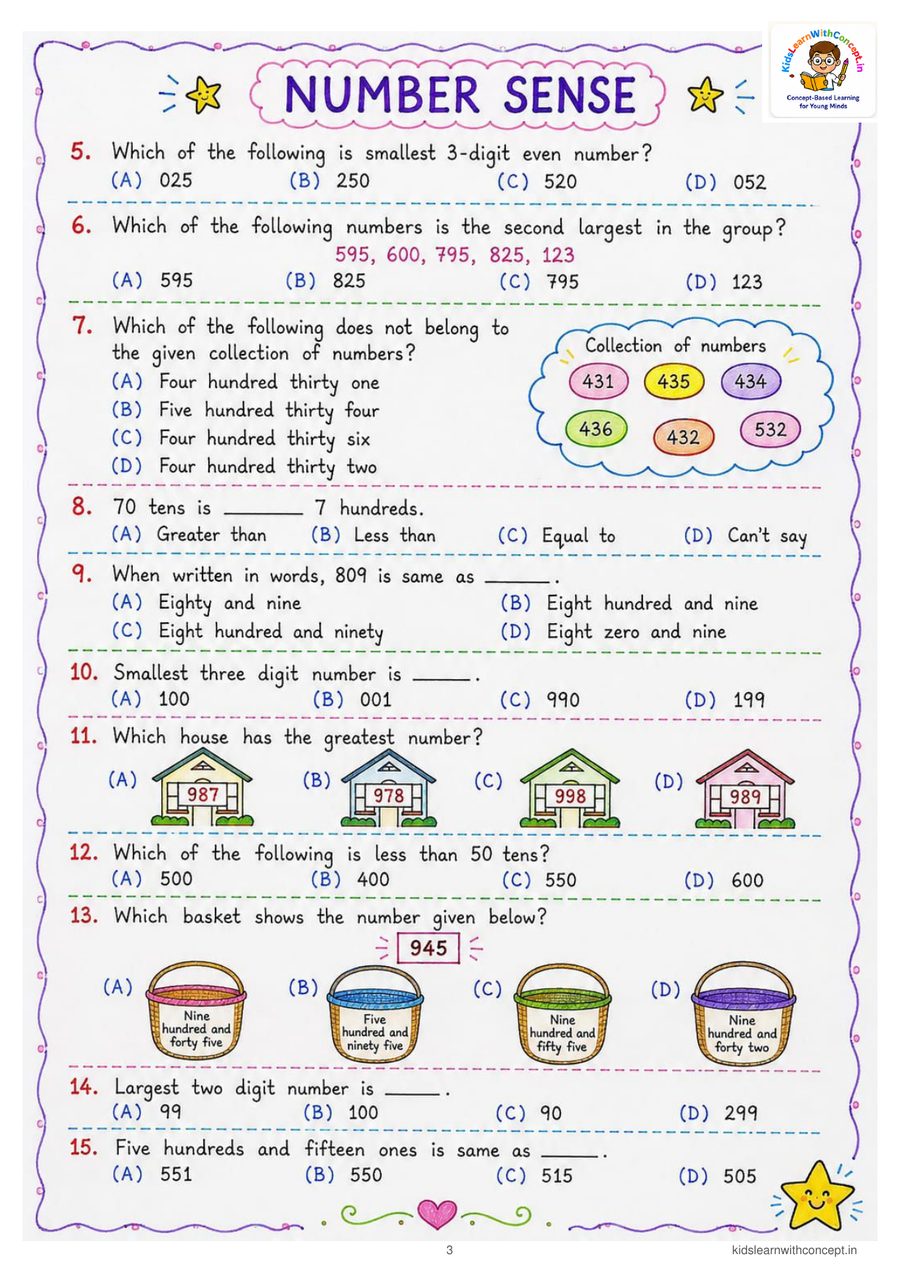 KidsLearnWithConcept.in
Concept-Based Learning
for Young Minds
NUMBER SENSE
5. Which of the following is smallest 3-digit even number?
(A) 025 (B) 250 (C) 520 (D) 052
6. Which of the following numbers is the second largest in the group?
595, 600, 795, 825, 123
(A) 595 (B) 825 (C) 795 (D) 123
7. Which of the following does not belong to
the given collection of numbers?
(A) Four hundred thirty one
(B) Five hundred thirty four
(C) Four hundred thirty six
(D) Four hundred thirty two
Collection of numbers
431 435 434
436 432 532
8. 70 tens is ______ 7 hundreds.
(A) Greater than (B) Less than (C) Equal to (D) Can't say
9. When written in words, 809 is same as ______.
(A) Eighty and nine (B) Eight hundred and nine
(C) Eight hundred and ninety (D) Eight zero and nine
10. Smallest three digit number is ______.
(A) 100 (B) 001 (C) 990 (D) 199
11. Which house has the greatest number?
(A) 987 (B) 978 (C) 998 (D) 989
12. Which of the following is less than 50 tens?
(A) 500 (B) 400 (C) 550 (D) 600
13. Which basket shows the number given below?
945
(A) Nine
hundred and
forty five
(B) Five
hundred and
ninety five
(C) Nine
hundred and
fifty five
(D) Nine
hundred and
forty two
14. Largest two digit number is ______.
(A) 99 (B) 100 (C) 90 (D) 299
15. Five hundreds and fifteen ones is same as ______.
(A) 551 (B) 550 (C) 515 (D) 505
3 kidslearnwithconcept.in